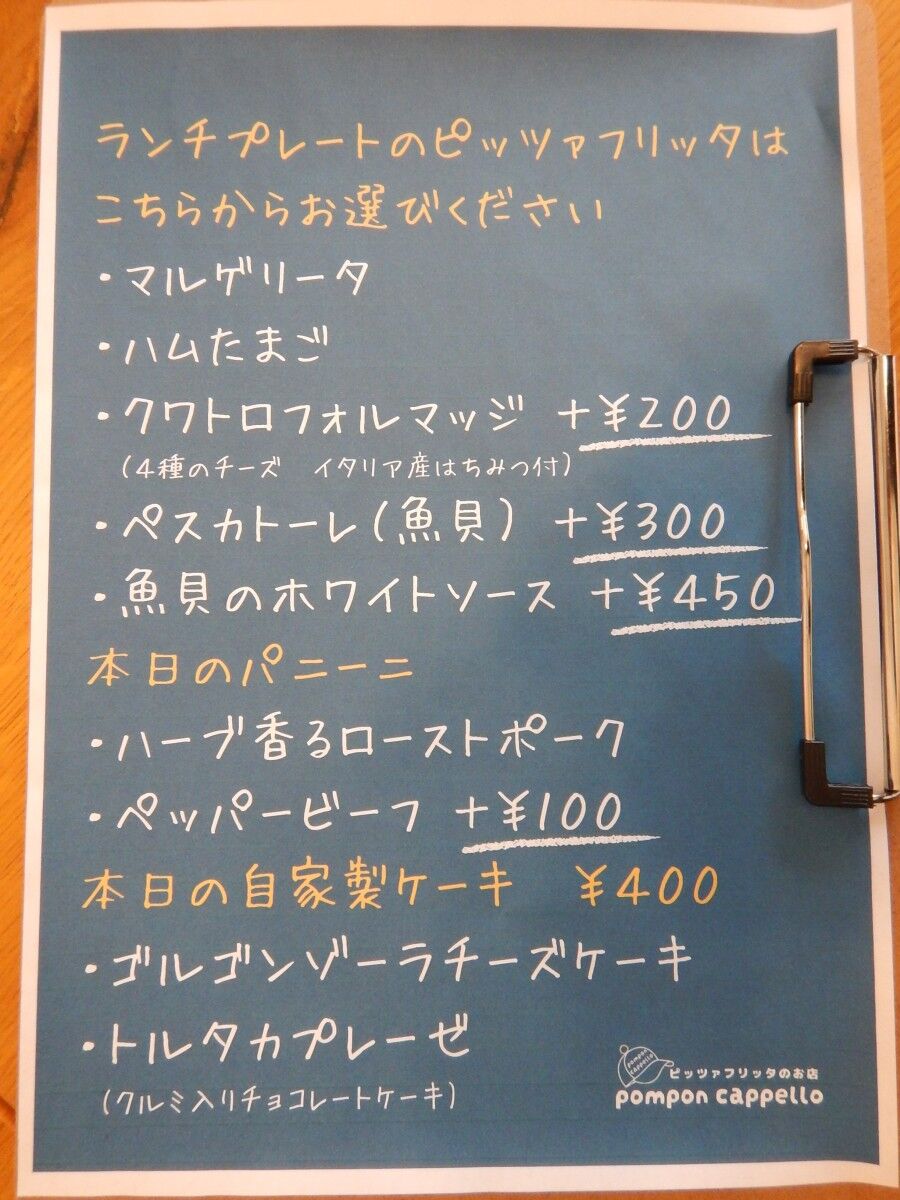 ランチプレートのピッツァフリッタは
こちらからお選びください
・マルゲリータ
・ハムたまご
・クワトロフォルマッジ +¥200
(4種のチーズ イタリア産はちみつ付)
・ペスカトーレ(魚貝) +¥300
・魚貝のホワイトソース +¥450
本日のパニーニ
・ハーブ香るローストポーク
・ペッパービーフ +¥100
本日の自家製ケーキ ¥400
・ゴルゴンゾーラチーズケーキ
・トルタカプレーゼ
(クルミ入りチョコレートケーキ)
pompon
cappello
ピッツァフリッタのお店
pompon cappello